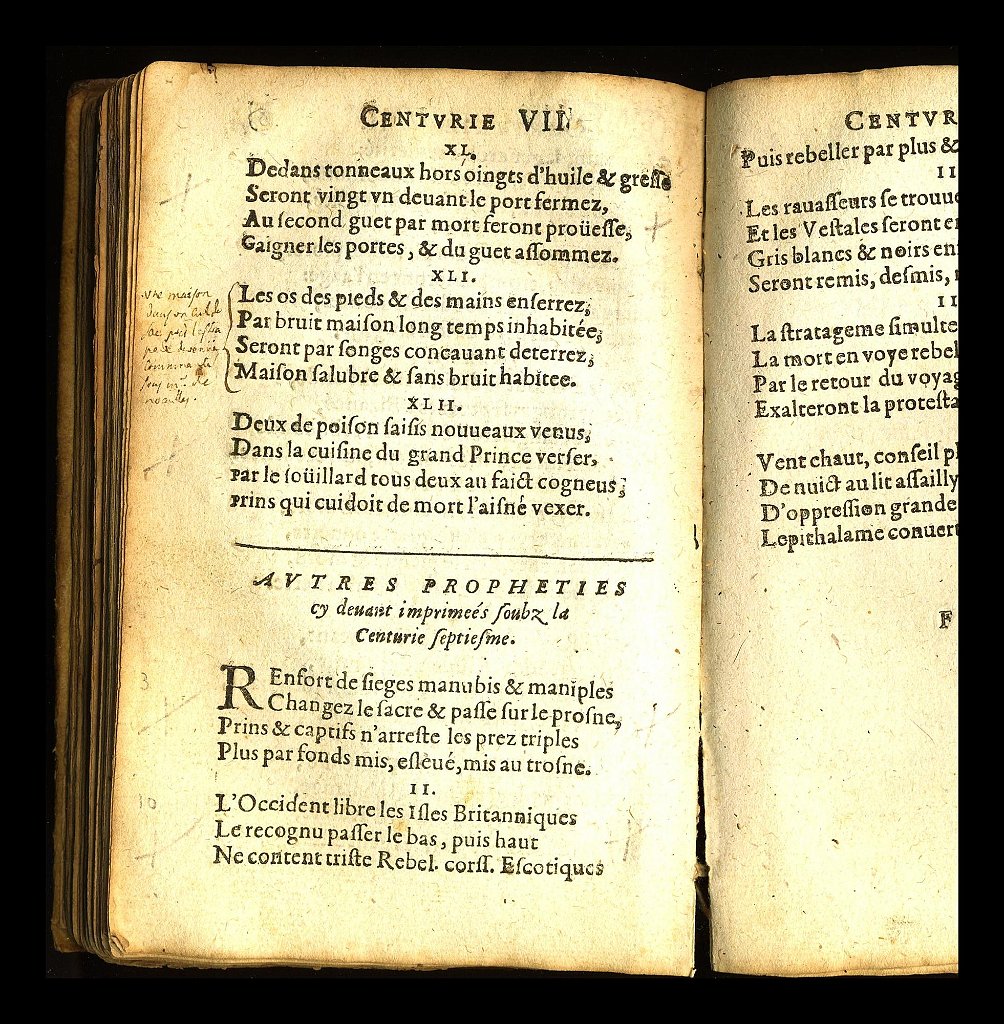 CENTVRIE VII.
XL.
Dedans tonneaux hors oingts d'huile & gresse
Seront vingt vn deuant le port fermez,
Au ſecond guet par mort feront proüeſſe,
Gaigner les portes, & du guet aſſommez.
XLI.
Les os des pieds & des mains enſerrez,
Par bruit maiſon long temps inhabitée,
Seront par ſonges concauant deterrez,
Maiſon ſalubre & ſans bruit habitee.
vne maiſon
XLII.
Deux de poiſon ſaiſis nouueaux venus,
Dans la cuiſine du grand Prince verſer,
Par le ſoüillard tous deux au faict cogneus,
Prins qui cuidoit de mort l'aiſné vexer.
AVTRES PROPHETIES
cy deuant imprimeés ſoubz la
Centurie ſeptieſme.
REnfort de ſieges manubis & maniples
Changez le ſacre & paſſe ſur le proſne,
Prins & captifs n'arreſte les prez triples
Plus par fonds mis, eſleué, mis au troſne.
3
II.
L'Occident libre les Iſles Britanniques
Le recognu paſſer le bas, puis haut
Ne content triſte Rebel. corſſ. Eſcotiques
10
CENTVR
Puis rebeller par plus &
II
Les rauaſſeurs ſe trouue
Et les Veſtales ſeront en
Gris blancs & noirs en
Seront remis, deſmis,
II
La ſtratageme ſimulte
La mort en voye rebel
Par le retour du voyag
Exalteront la proteſta
Vent chaut, conſeil pl
De nuict au lit aſſailly
D'oppreſſion grande
Lepithalame conuert
F